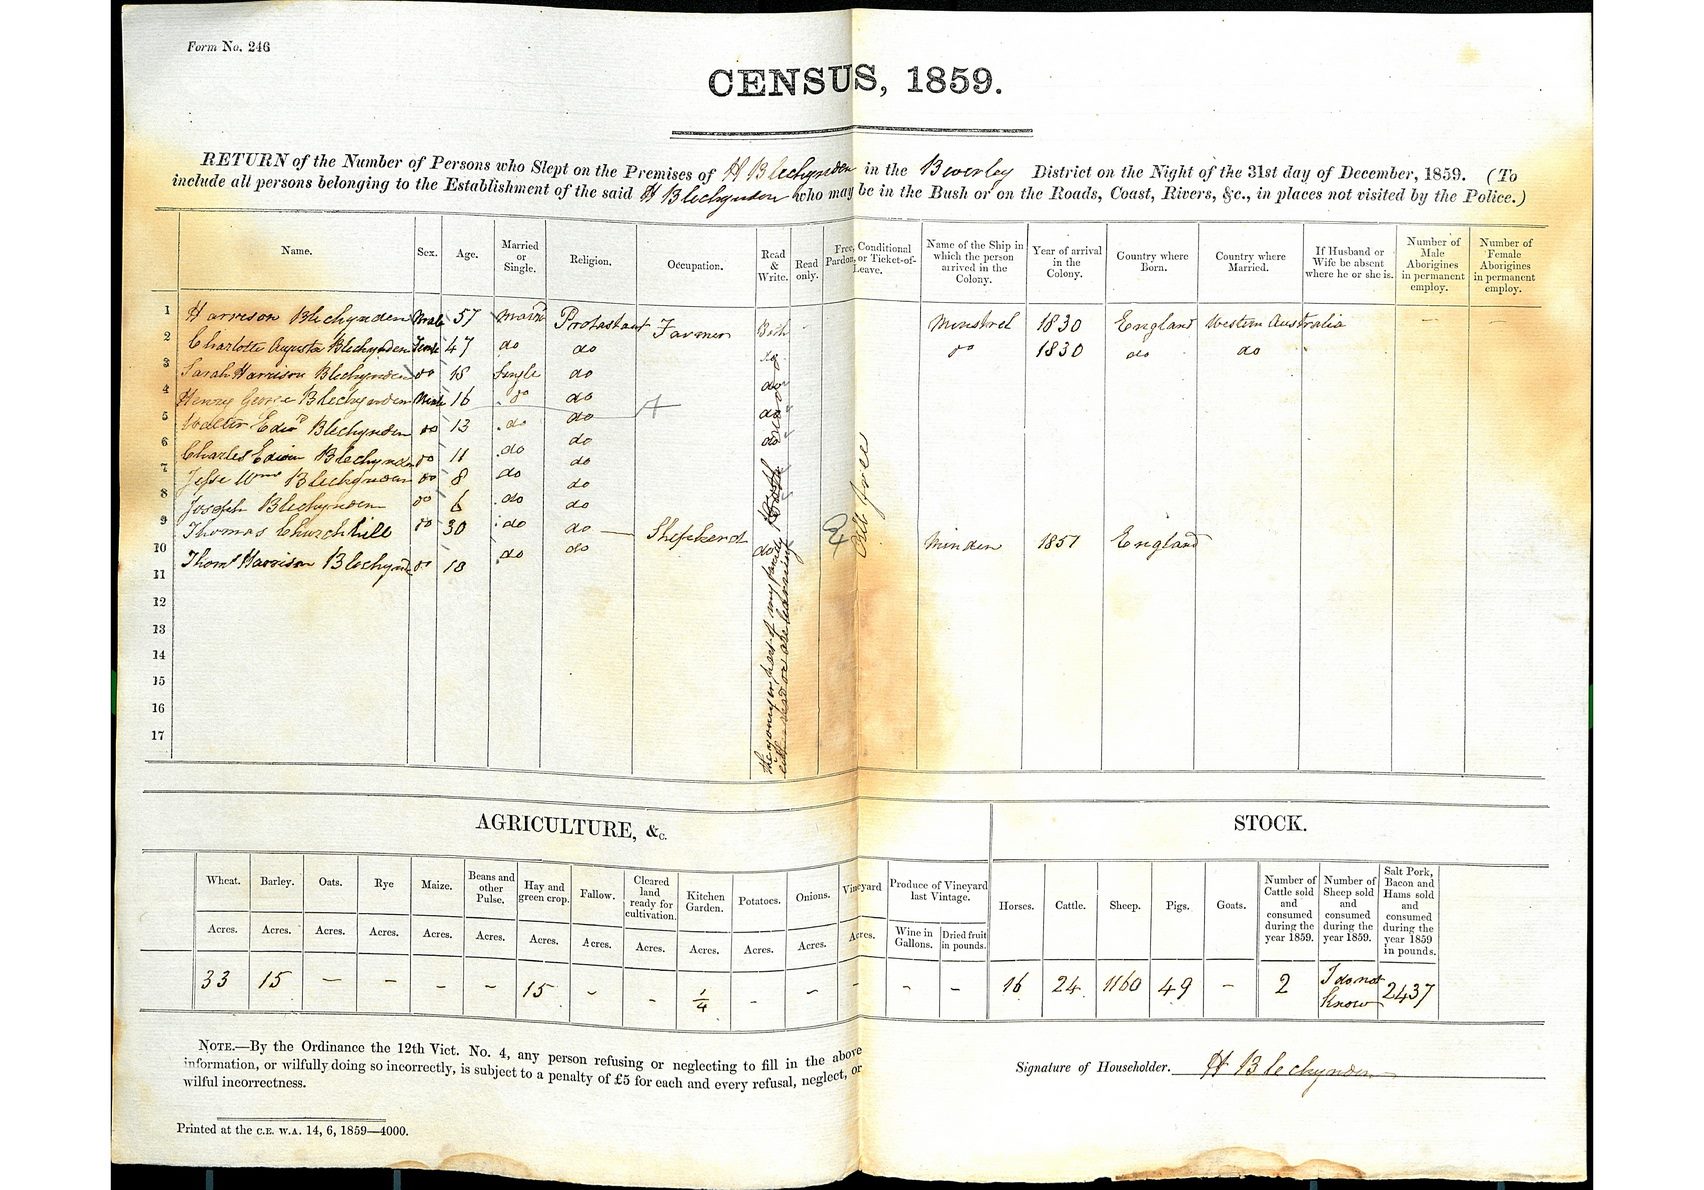 Form No. 246
CENSUS, 1859.
RETURN of the Number of Persons who Slept on the Premises of H Blechynden in the Beverley District on the Night of the 31st day of December, 1859. (To
include all persons belonging to the Establishment of the said H Blechynden who may be in the Bush or on the Roads, Coast, Rivers, &c., in places not visited by the Police.)
Name. Sex. Age. Married or Single. Religion. Occupation. Read & Write. Read only. Free, Conditional Pardon, or Ticket-of-Leave. Name of the Ship in which the person arrived in the Colony. Year of arrival in the Colony. Country where Born. Country where Married. If Husband or Wife be absent where he or she is. Number of Male Aborigines in permanent employ. Number of Female Aborigines in permanent employ.
1 Harrison Blechynden Male 57 Protestant Farmer Both - Minstrel 1830 England Western Australia — —
2 Charlotte Augusta Blechynden 47 do do do do 1830 do do
3 Sarah Harrison Blechynden do 18 Single do do
4 Henry George Blechynden Male 16 do do do
5 Walter Edwd Blechynden do 13 do do do
6 Charles Edwin Blechynden do 11 do do
7 Jesse Wm Blechynden do 8 do do
8 Joseph Blechynden do 6 do do
9 Thomas Churchhill do 30 do do — Shepherd do Minden 1851 England
10 Thoms Harrison Blechynd do 10 do do
11
12
13
14
15
16
17
the younger part of my family
either read or are learning
All free
AGRICULTURE, &c.
STOCK.
Wheat. Barley. Oats. Rye Maize. Beans and other Pulse. Hay and green crop. Fallow. Cleared land ready for cultivation. Kitchen Garden. Potatoes. Onions. Vineyard Produce of Vineyard last Vintage. Horses. Cattle. Sheep. Pigs. Goats. Number of Cattle sold and consumed during the year 1859. Number of Sheep sold and consumed during the year 1859. Salt Pork, Bacon and Hams sold and consumed during the year 1859 in pounds.
Acres. Acres. Acres. Acres. Acres. Acres. Acres. Acres. Acres. Acres. Acres. Acres. Acres. Wine in Gallons. Dried fruit in pounds.
33 15 — — — — 15 — — 1/4 — — — — — 16 24 1160 49 — 2 I do not know 2437
NOTE.—By the Ordinance the 12th Vict. No. 4, any person refusing or neglecting to fill in the above
information, or wilfully doing so incorrectly, is subject to a penalty of £5 for each and every refusal, neglect, or
wilful incorrectness.
Signature of Householder. H Blechynden
Printed at the C.E. W.A. 14, 6, 1859—4000.